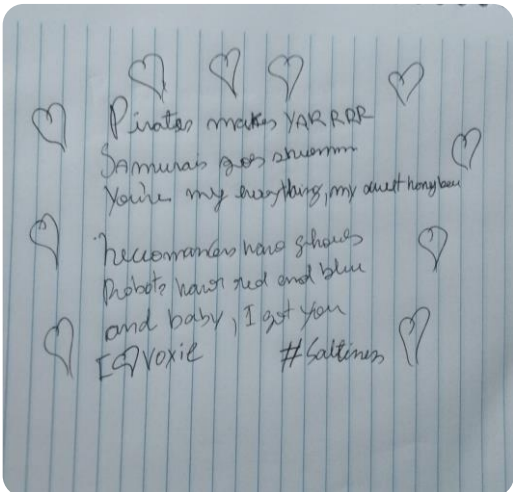 Pirates makes YARRRR
Samurais goes shuemm
You're my everything, my sweet honeybee
Necromancers have ghouls
Robots have red and blue
and baby, I got you
Voxie #Saltines